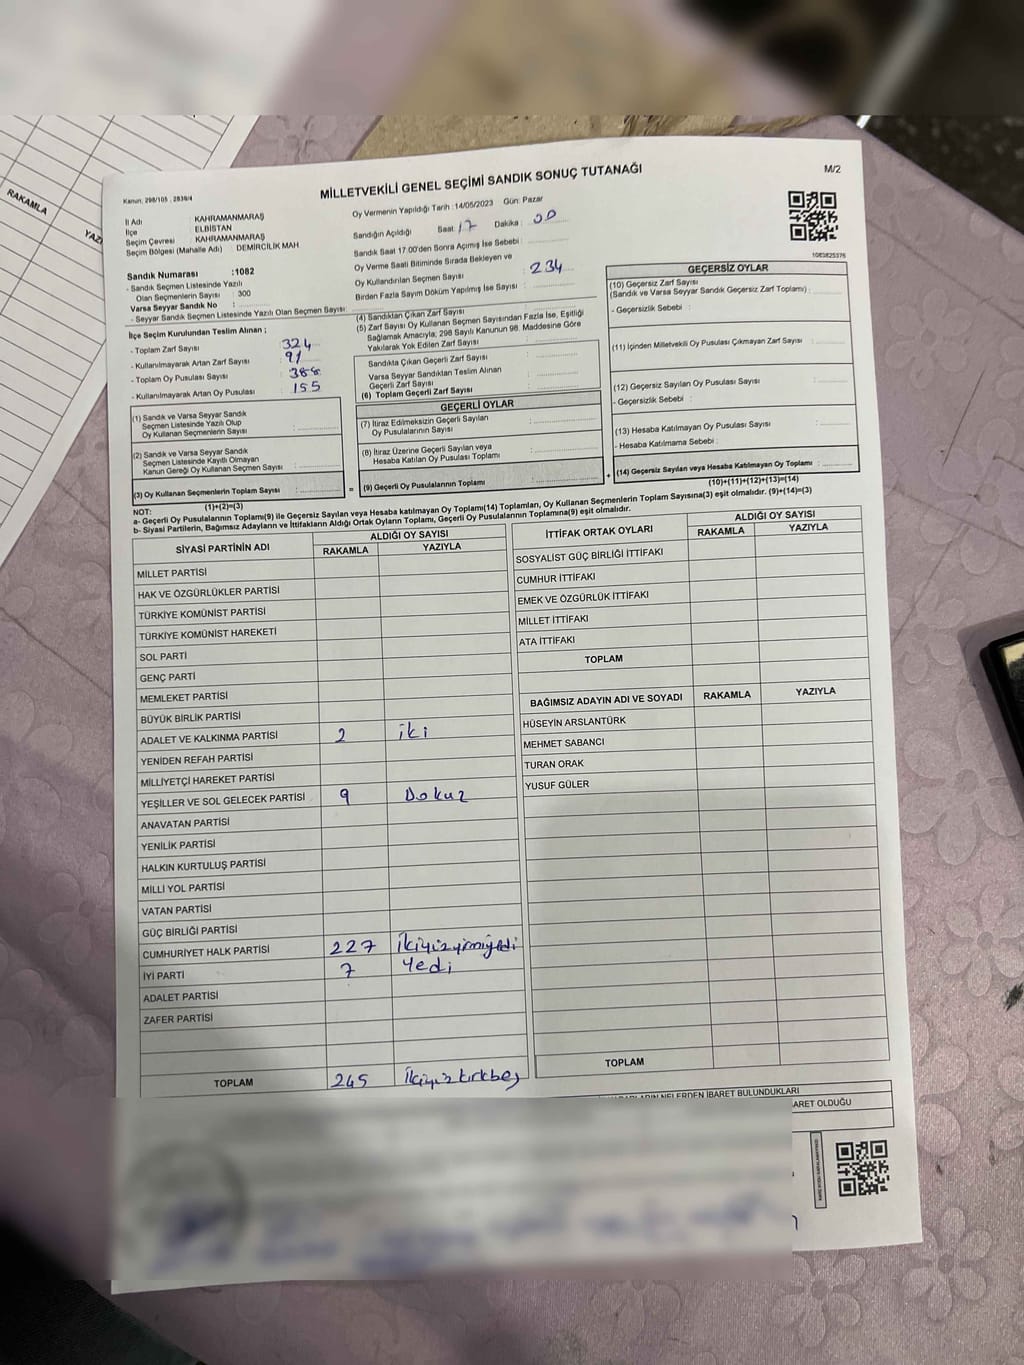 RAKAMLA
YAZI
MİLLETVEKİLİ GENEL SEÇİMİ SANDIK SONUÇ TUTANAĞI
M/2
Kanun, 298/105 , 2839/4
İl Adı : KAHRAMANMARAŞ
İlçe : ELBİSTAN
Seçim Çevresi : KAHRAMANMARAŞ
Seçim Bölgesi (Mahalle Adı) : DEMİRCİLİK MAH
Oy Vermenin Yapıldığı Tarih : 14/05/2023 Gün: Pazar
Sandığın Açıldığı Saat : 17 Dakika : 00
Sandık Saat 17.00'den Sonra Açılmış İse Sebebi :
Oy Verme Saati Bitiminde Sırada Bekleyen ve
Oy Kullandırılan Seçmen Sayısı : 234
Birden Fazla Sayım Döküm Yapılmış İse Sayısı :
Sandık Numarası :1082
- Sandık Seçmen Listesinde Yazılı
Olan Seçmenlerin Sayısı : 300
Varsa Seyyar Sandık No :
- Seyyar Sandık Seçmen Listesinde Yazılı Olan Seçmen Sayısı:
İlçe Seçim Kurulundan Teslim Alınan ;
- Toplam Zarf Sayısı : 324
- Kullanılmayarak Artan Zarf Sayısı : 91
- Toplam Oy Pusulası Sayısı : 388
- Kullanılmayarak Artan Oy Pusulası : 155
(1) Sandık ve Varsa Seyyar Sandık
Seçmen Listesinde Yazılı Olup
Oy Kullanan Seçmenlerin Sayısı :
(2) Sandık ve Varsa Seyyar Sandık
Seçmen Listesinde Kayıtlı Olmayan
Kanun Gereği Oy Kullanan Seçmen Sayısı :
(3) Oy Kullanan Seçmenlerin Toplam Sayısı :
(1)+(2)=(3)
(4) Sandıktan Çıkan Zarf Sayısı :
(5) Zarf Sayısı Oy Kullanan Seçmen Sayısından Fazla İse, Eşitliği
Sağlamak Amacıyla; 298 Sayılı Kanunun 98. Maddesine Göre
Yakılarak Yok Edilen Zarf Sayısı :
Sandıkta Çıkan Geçerli Zarf Sayısı :
Varsa Seyyar Sandıktan Teslim Alınan
Geçerli Zarf Sayısı :
(6) Toplam Geçerli Zarf Sayısı :
GEÇERLİ OYLAR
(7) İtiraz Edilmeksizin Geçerli Sayılan
Oy Pusulalarının Sayısı :
(8) İtiraz Üzerine Geçerli Sayılan veya
Hesaba Katılan Oy Pusulası Toplamı :
= (9) Geçerli Oy Pusulalarının Toplamı :
1083825376
GEÇERSİZ OYLAR
(10) Geçersiz Zarf Sayısı
(Sandık ve Varsa Seyyar Sandık Geçersiz Zarf Toplamı) :
- Geçersizlik Sebebi :
(11) İçinden Milletvekili Oy Pusulası Çıkmayan Zarf Sayısı :
(12) Geçersiz Sayılan Oy Pusulası Sayısı :
- Geçersizlik Sebebi :
(13) Hesaba Katılmayan Oy Pusulası Sayısı :
- Hesaba Katılmama Sebebi :
+ (14) Geçersiz Sayılan veya Hesaba Katılmayan Oy Toplamı :
(10)+(11)+(12)+(13)=(14)
NOT:
a- Geçerli Oy Pusulalarının Toplamı(9) ile Geçersiz Sayılan veya Hesaba katılmayan Oy Toplamı(14) Toplamları, Oy Kullanan Seçmenlerin Toplam Sayısına(3) eşit olmalıdır. (9)+(14)=(3)
b- Siyasi Partilerin, Bağımsız Adayların ve İttifakların Aldığı Ortak Oyların Toplamı, Geçerli Oy Pusulalarının Toplamına(9) eşit olmalıdır.
SİYASİ PARTİNİN ADI
ALDIĞI OY SAYISI
RAKAMLA YAZIYLA
MİLLET PARTİSİ
HAK VE ÖZGÜRLÜKLER PARTİSİ
TÜRKİYE KOMÜNİST PARTİSİ
TÜRKİYE KOMÜNİST HAREKETİ
SOL PARTİ
GENÇ PARTİ
MEMLEKET PARTİSİ
BÜYÜK BİRLİK PARTİSİ
ADALET VE KALKINMA PARTİSİ 2 iki
YENİDEN REFAH PARTİSİ
MİLLİYETÇİ HAREKET PARTİSİ
YEŞİLLER VE SOL GELECEK PARTİSİ 9 Dokuz
ANAVATAN PARTİSİ
YENİLİK PARTİSİ
HALKIN KURTULUŞ PARTİSİ
MİLLİ YOL PARTİSİ
VATAN PARTİSİ
GÜÇ BİRLİĞİ PARTİSİ
CUMHURİYET HALK PARTİSİ 227 İkiyüzyirmiyedi
İYİ PARTİ 7 Yedi
ADALET PARTİSİ
ZAFER PARTİSİ
TOPLAM 245 İkiyüzkırkbeş
İTTİFAK ORTAK OYLARI
ALDIĞI OY SAYISI
RAKAMLA YAZIYLA
SOSYALİST GÜÇ BİRLİĞİ İTTİFAKI
CUMHUR İTTİFAKI
EMEK VE ÖZGÜRLÜK İTTİFAKI
MİLLET İTTİFAKI
ATA İTTİFAKI
TOPLAM
BAĞIMSIZ ADAYIN ADI VE SOYADI RAKAMLA YAZIYLA
HÜSEYİN ARSLANTÜRK
MEHMET SABANCI
TURAN ORAK
YUSUF GÜLER
TOPLAM
NELERDEN İBARET BULUNDUKLARI
ARET OLDUĞU